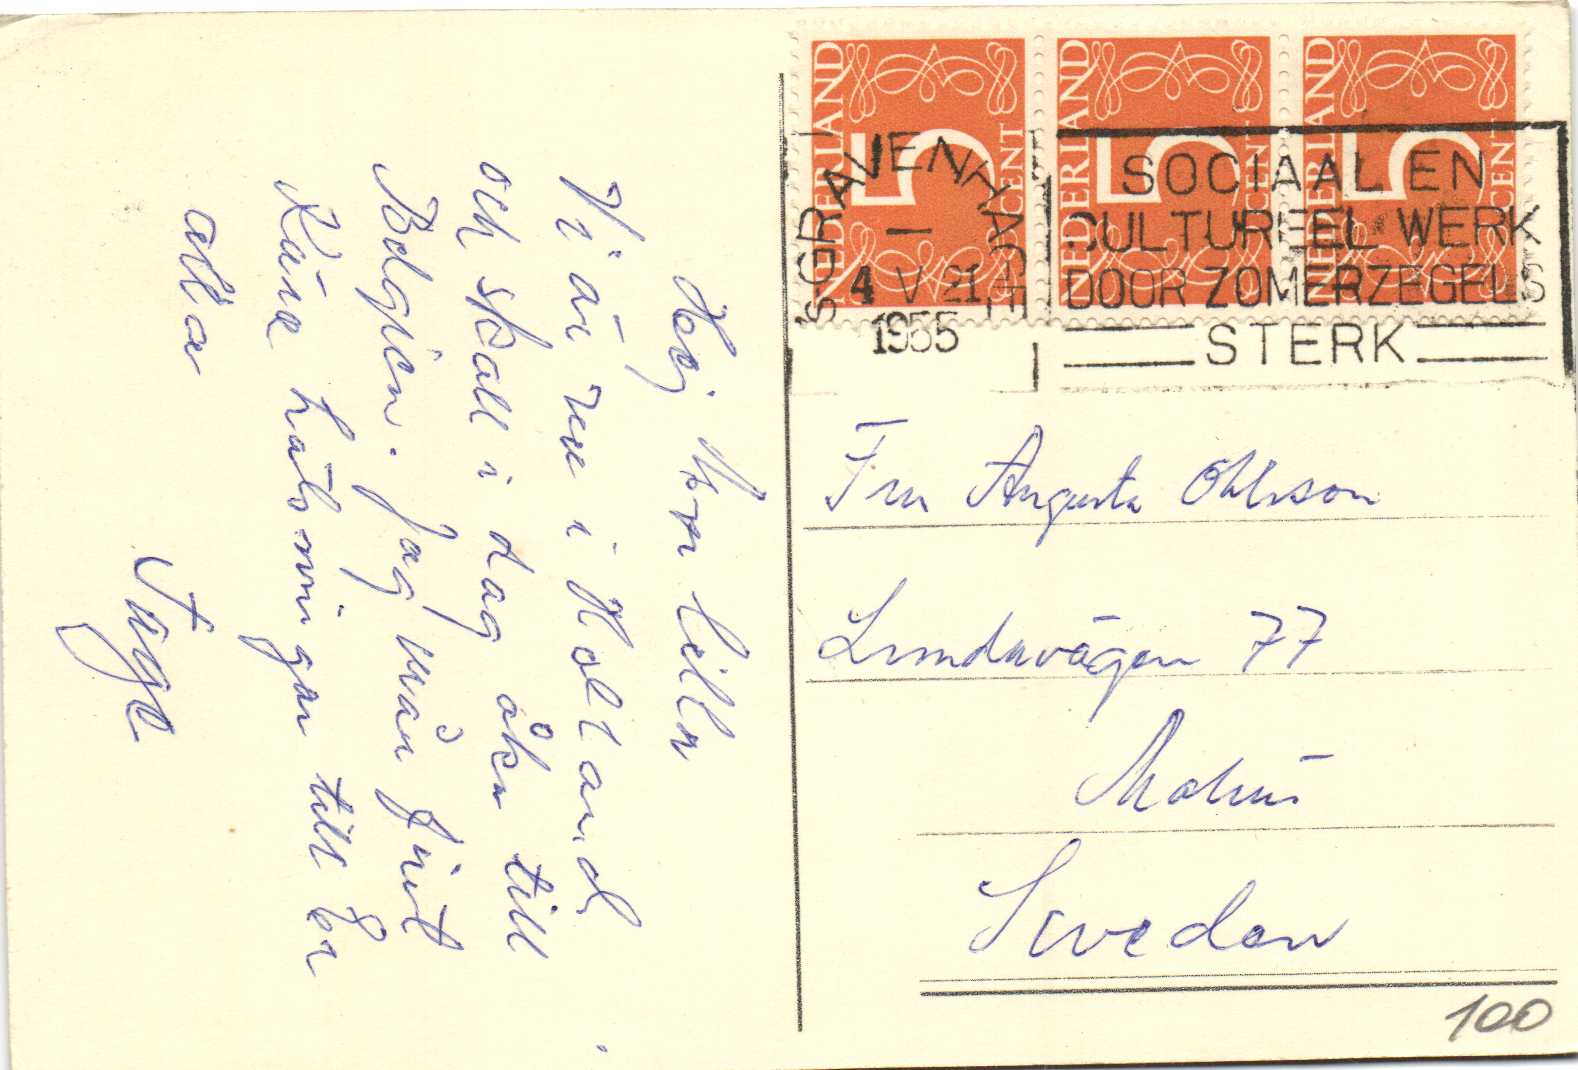 Hej Mor lilla
Vi är nu i Holland
och skall i dag åka till
Belgien. Jag mår fint
Kära hälsningar till Er
alla
Tage
NEDERLAND
5
CENT
NEDERLAND
5
CENT
NEDERLAND
5
CENT
's-GRAVENHAGE
4 V 21
1955
SOCIAAL EN
CULTUREEL WERK
DOOR ZOMERZEGELS
STERK
Fru Augusta Ohlsson
Lundavägen 77
Malmö
Sweden
100